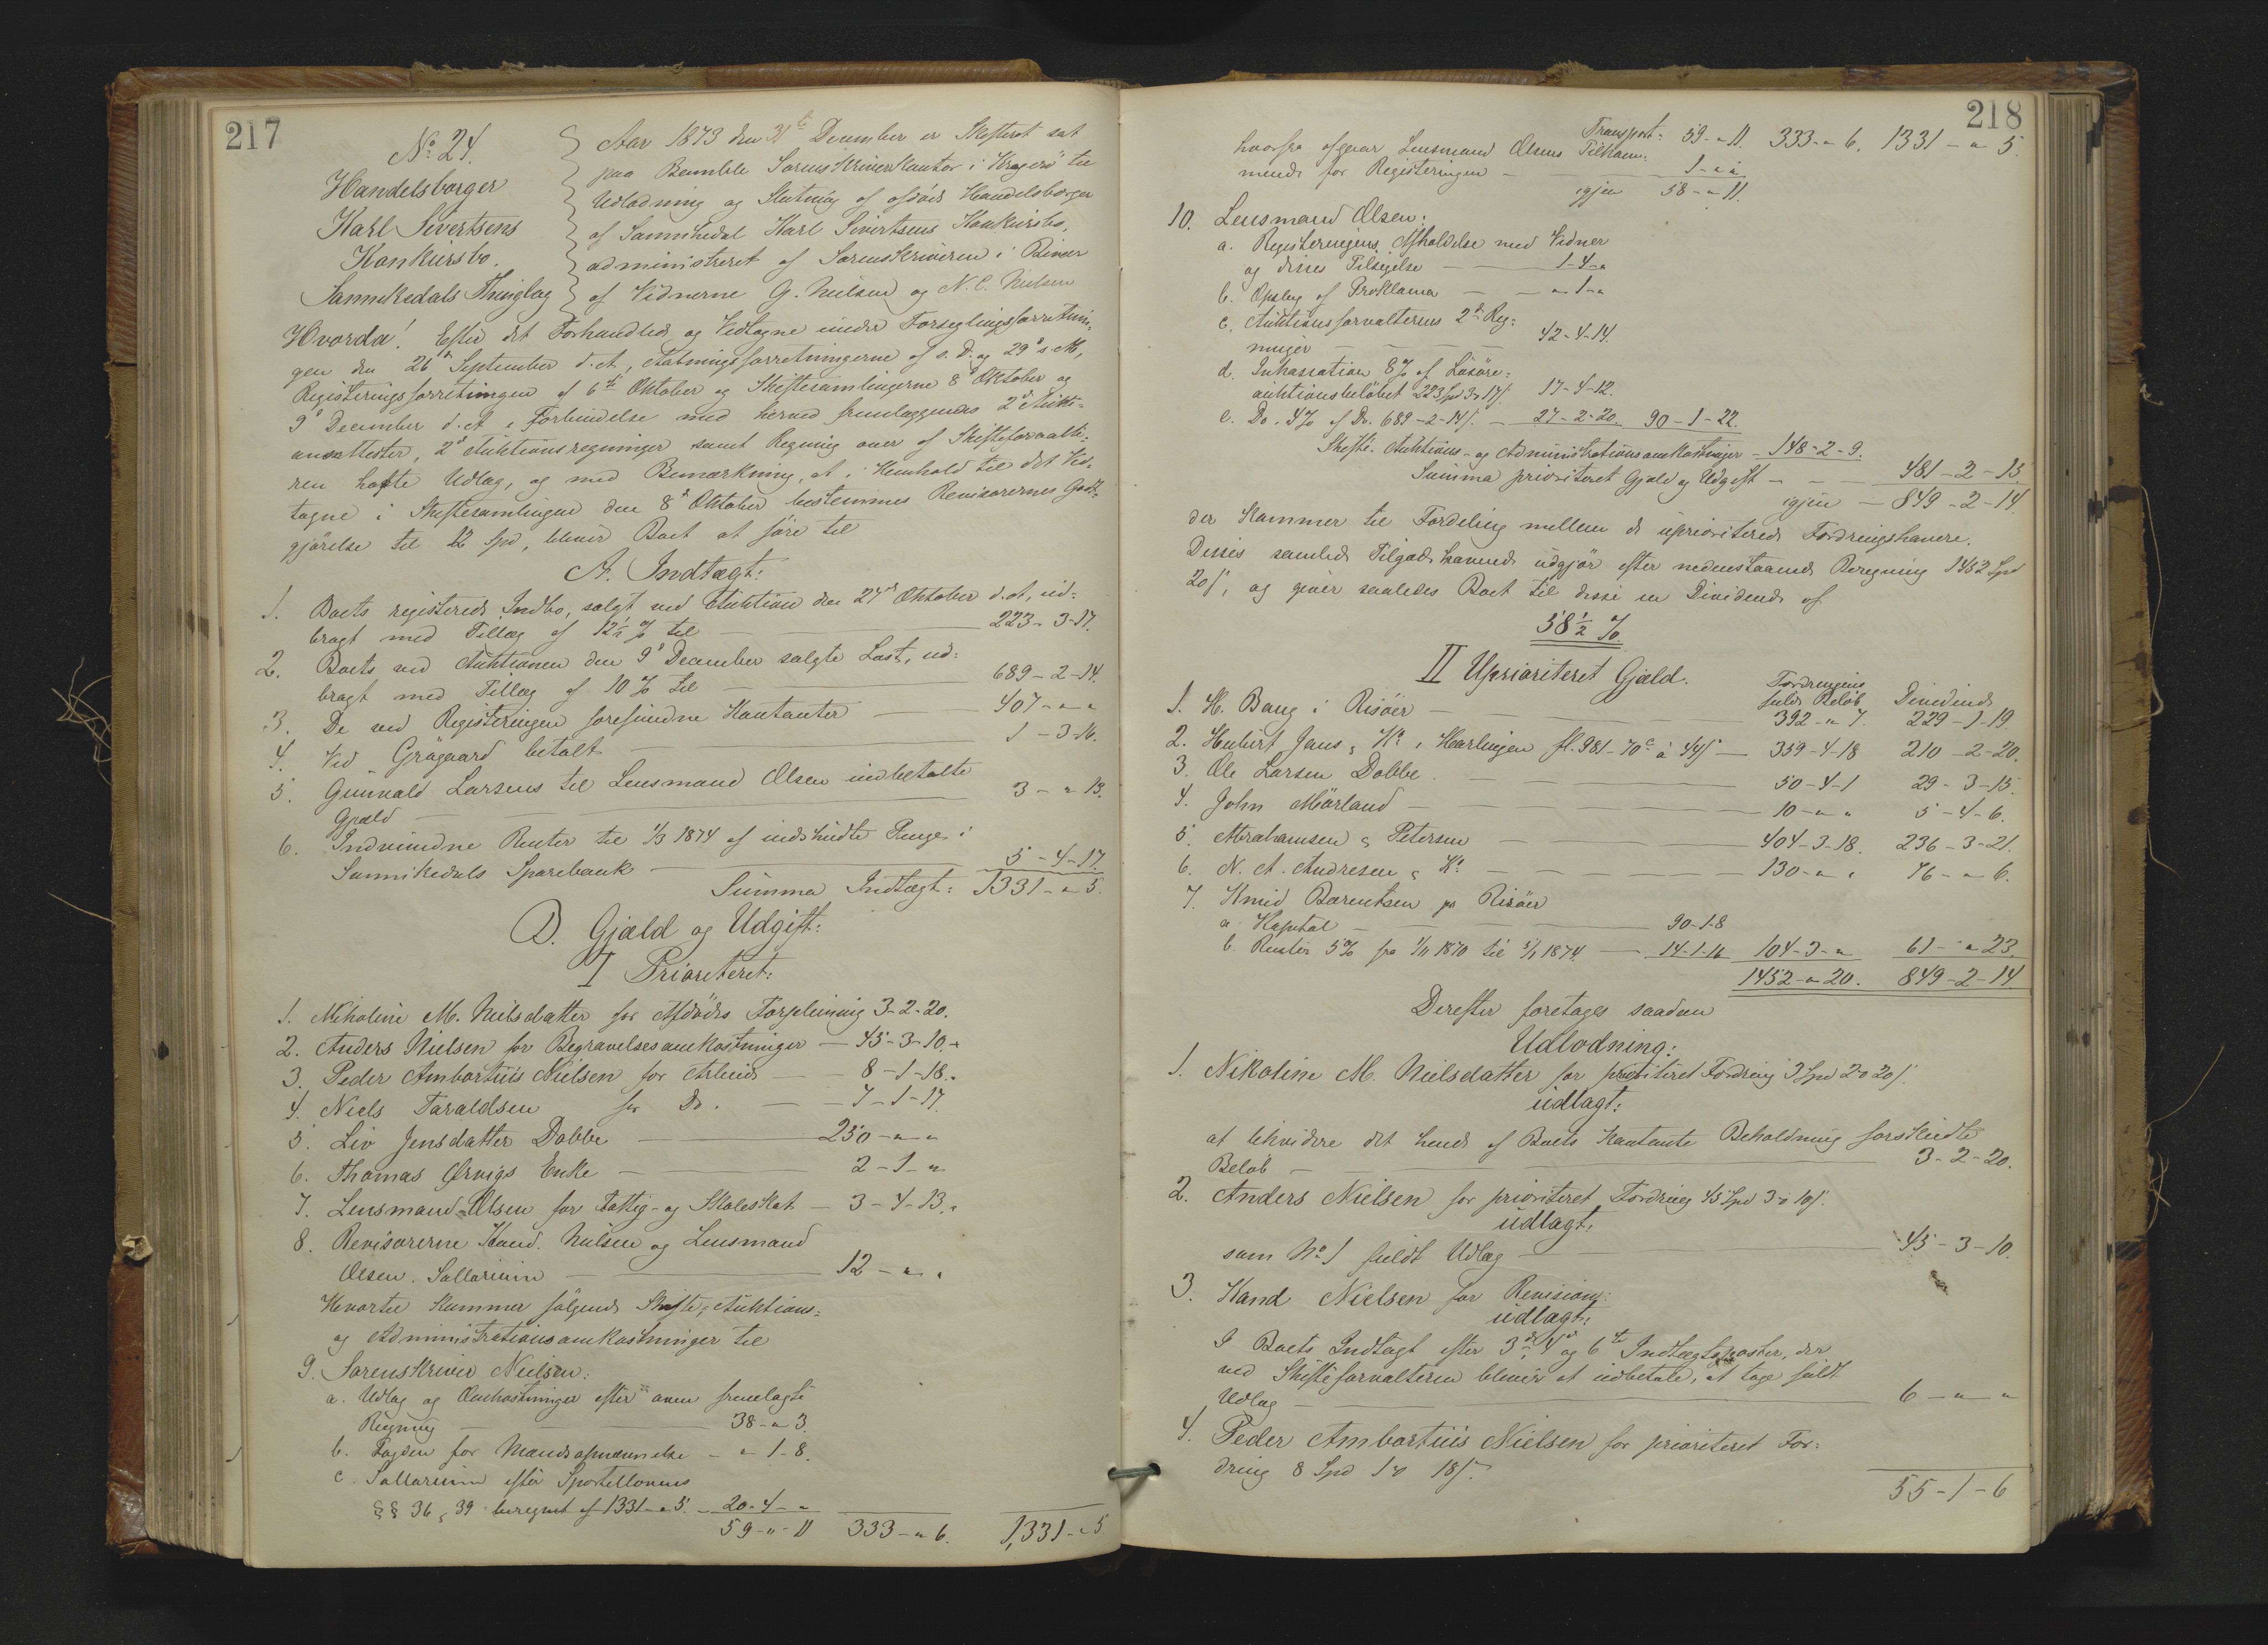 217
No 24.
Handelsborger
Karl Sivertsens
Konkursbo.
Sannikedals Thinglag
Aar 1873 den 31te December er Skifteret sat
paa Bamble Sorenskriverkontor i Kragerö til
Udlodning og Slutning af afdöde Handelsborger
af Sannikedal Karl Sivertsens Konkursbo,
administreret af Sorenskriveren i Binær
af Vidnerne G. Nielsen og N. C. Nielsen
Hvorda! Efter det Forhandlede og Vedtagne under Forseglingsforretnin-
gen den 26de September d. A., Aabningsforretningerne af s. D. og 29de s. M.,
Registeringsforretningen af 6te Oktober og Skiftesamlingerne 8de Oktober og
9de December d. A. i Forbindelse med herved fremlæggendes 2de Aukti-
onsattester, 2de Auktionsregninger samt Regning over af Skifteforvalte-
ren hafte Udlæg, og med Bemærkning, at i Henhold til det Ved-
tagne i Skiftesamlingen den 8de Oktober bestemmes Revisorernes Godt-
gjörelse til 12 Spd, bliver Boet at före til
A. Indtægt:
1. Boets registerede Indbo, solgt ved Auktion den 24de Oktober d. A., ud-
bragt med Tillæg af 12½ % til — 223-3-17.
2. Boets ved Auktionen den 9de December solgte Last, ud-
bragt med Tillæg af 10 % til — 689-2-14.
3. De ved Registeringen forefundne Kontanter — 407-"-"
4. Ved Grågaard betalt — 1-3-16.
5. Gunvald Larsens til Lensmand Olsen indbetalte
Gjæld — 3-"-13.
6. Indvundne Renter til 1/3 1874 af indskudte Penge i
Sannikedals Sparebank — 5-4-17
Summa Indtægt: 1331-"-5.
B. Gjæld og Udgift:
I Prioriteret:
1. Nikoline M. Nielsdatter for Afdödes Forpleining 3-2-20.
2. Anders Nielsen for Begravelsesomkostninger — 45-3-10.
3. Peder Ambortius Nielsen for Arbeide — 8-1-18.
4. Niels Taraldsen for Do. — 7-1-17.
5. Liv Jensdatter Dobbe — 250-"-"
6. Thomas Ørvigs Enke — 2-1-"
7. Lensmand Olsen for Fattig- og Skoleskat — 3-4-13.
8. Revisorerne Kand. Nielsen og Lensmand
Olsen. Sallarium — 12-"-"
Hvortil kommer fölgende Skifte-, Auktions-
og Administrationsomkostninger til
9. Sorenskriver Nielsen:
a. Udlæg og Omkostninger efter oven fremlagte
Regning — 38-"-3.
b. Fogden for Mandsopnævnelse — "-1-8.
c. Sallarium efter Sportellovens
§§ 36 & 39 beregnet af 1331-"-5. — 20-4-"
59-"-11 333-"-6. 1,331-"-5
218
Transport: 59-"-11. 333-"-6. 1331-"-5.
hvorfra afgaar Lensmand Olsens Tilkom-
mende for Registeringen — 1-"-"
igjen 58-"-11.
10. Lensmand Olsen:
a. Registeringens Afholdelse med Vidner
og disses Tilsigelse — 1-4-"
b. Opslag af Proklama — "-1-"
c. Auktionsforvalterens 2de Reg-
ninger — 42-4-14.
d. Inkassation 8 % af Lösöre-
auktionsbelöbet 223 Spd 3 o 17 s. 17-4-12.
e. Do. 4 % af Do. 689-2-14 s. — 27-2-20. 90-1-22.
Skifte- Auktions- og Administrationsomkostninger — 148-2-9.
Summa prioriteret Gjæld og Udgift — 481-2-15
igjen — 849-2-14.
der kommer til Fordeling mellem de uprioriterede Fordringshavere.
Disses samlede Tilgodehavende udgjör efter nedenstaaende Beregning 1452 Spd
20 s, og giver saaledes Boet til disse en Dividende af
58½ %
II Uprioriteret Gjæld.
Fordringens
fulde Belöb Dividende
1. H. Bang i Risöer — 392-"-7. 229-1-19.
2. Hubert Jans & Ko i Harlingen fl. 981-70c à 44 s — 359-4-18 210-2-20.
3. Ole Larsen Dobbe. — 50-4-1 29-3-15.
4. John Mörland — 10-"-" 5-4-6.
5. Abrahamsen & Petersen — 404-3-18. 236-3-21.
6. N. A. Andresen & Ko — 130-"-" 76-"-6.
7. Knud Barentsen pr Risöer
a. Kapital — 90-1-8
b. Renter 5 % fra 1/11 1870 til 5/1 1874. — 14-1-16 104-3-" 61-"-23.
1452-"-20. 849-2-14
Derefter foretages saadan
Udlodning:
1. Nikoline M. Nielsdatter for prioriteret Fordring 3 Spd 2 o 20 s.
udlagt:
at likvidere det hende af Boets kontante Beholdning forskudte
Belöb — 3-2-20.
2. Anders Nielsen for prioriteret Fordring 45 Spd 3 o 10 s.
udlagt:
som No 1 fuldt Udlæg — 45-3-10.
3. Kand Nielsen for Revision:
udlagt:
I Boets Indtægt efter 3de, 4de og 6te Indtægtsposter, der
ved Skifteforvalteren bliver at indbetale, at tage fuldt
Udlæg — 6-"-"
4. Peder Ambortius Nielsen for prioriteret For-
dring 8 Spd 1 o 18 s.
55-1-6